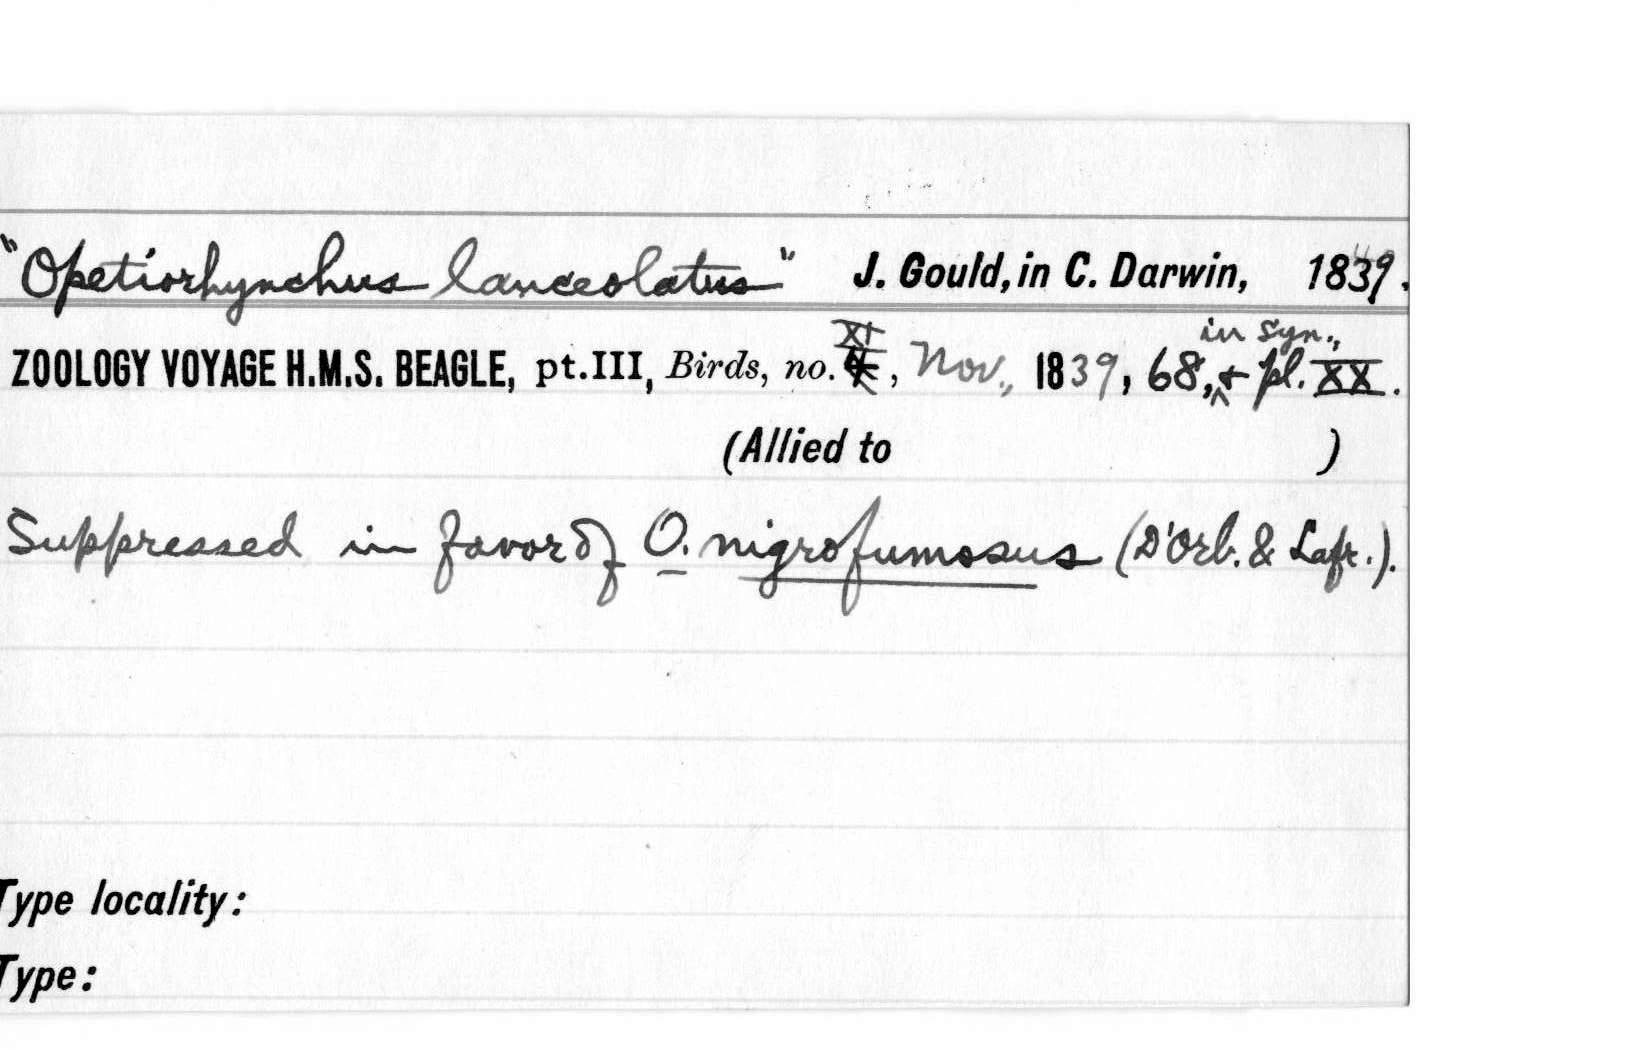 "Opetiorhynchus lanceolatus" J. Gould, in C. Darwin, 1839.
ZOOLOGY VOYAGE H.M.S. BEAGLE, pt.III, Birds, no. XI, Nov., 1839, 68, in syn., & pl. XX.
(Allied to )
Suppressed in favor of O. nigrofumosus (D'Orb. & Lafr.).
Type locality:
Type: